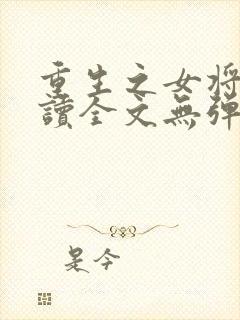 重生之女將
讀全文無彈
是今